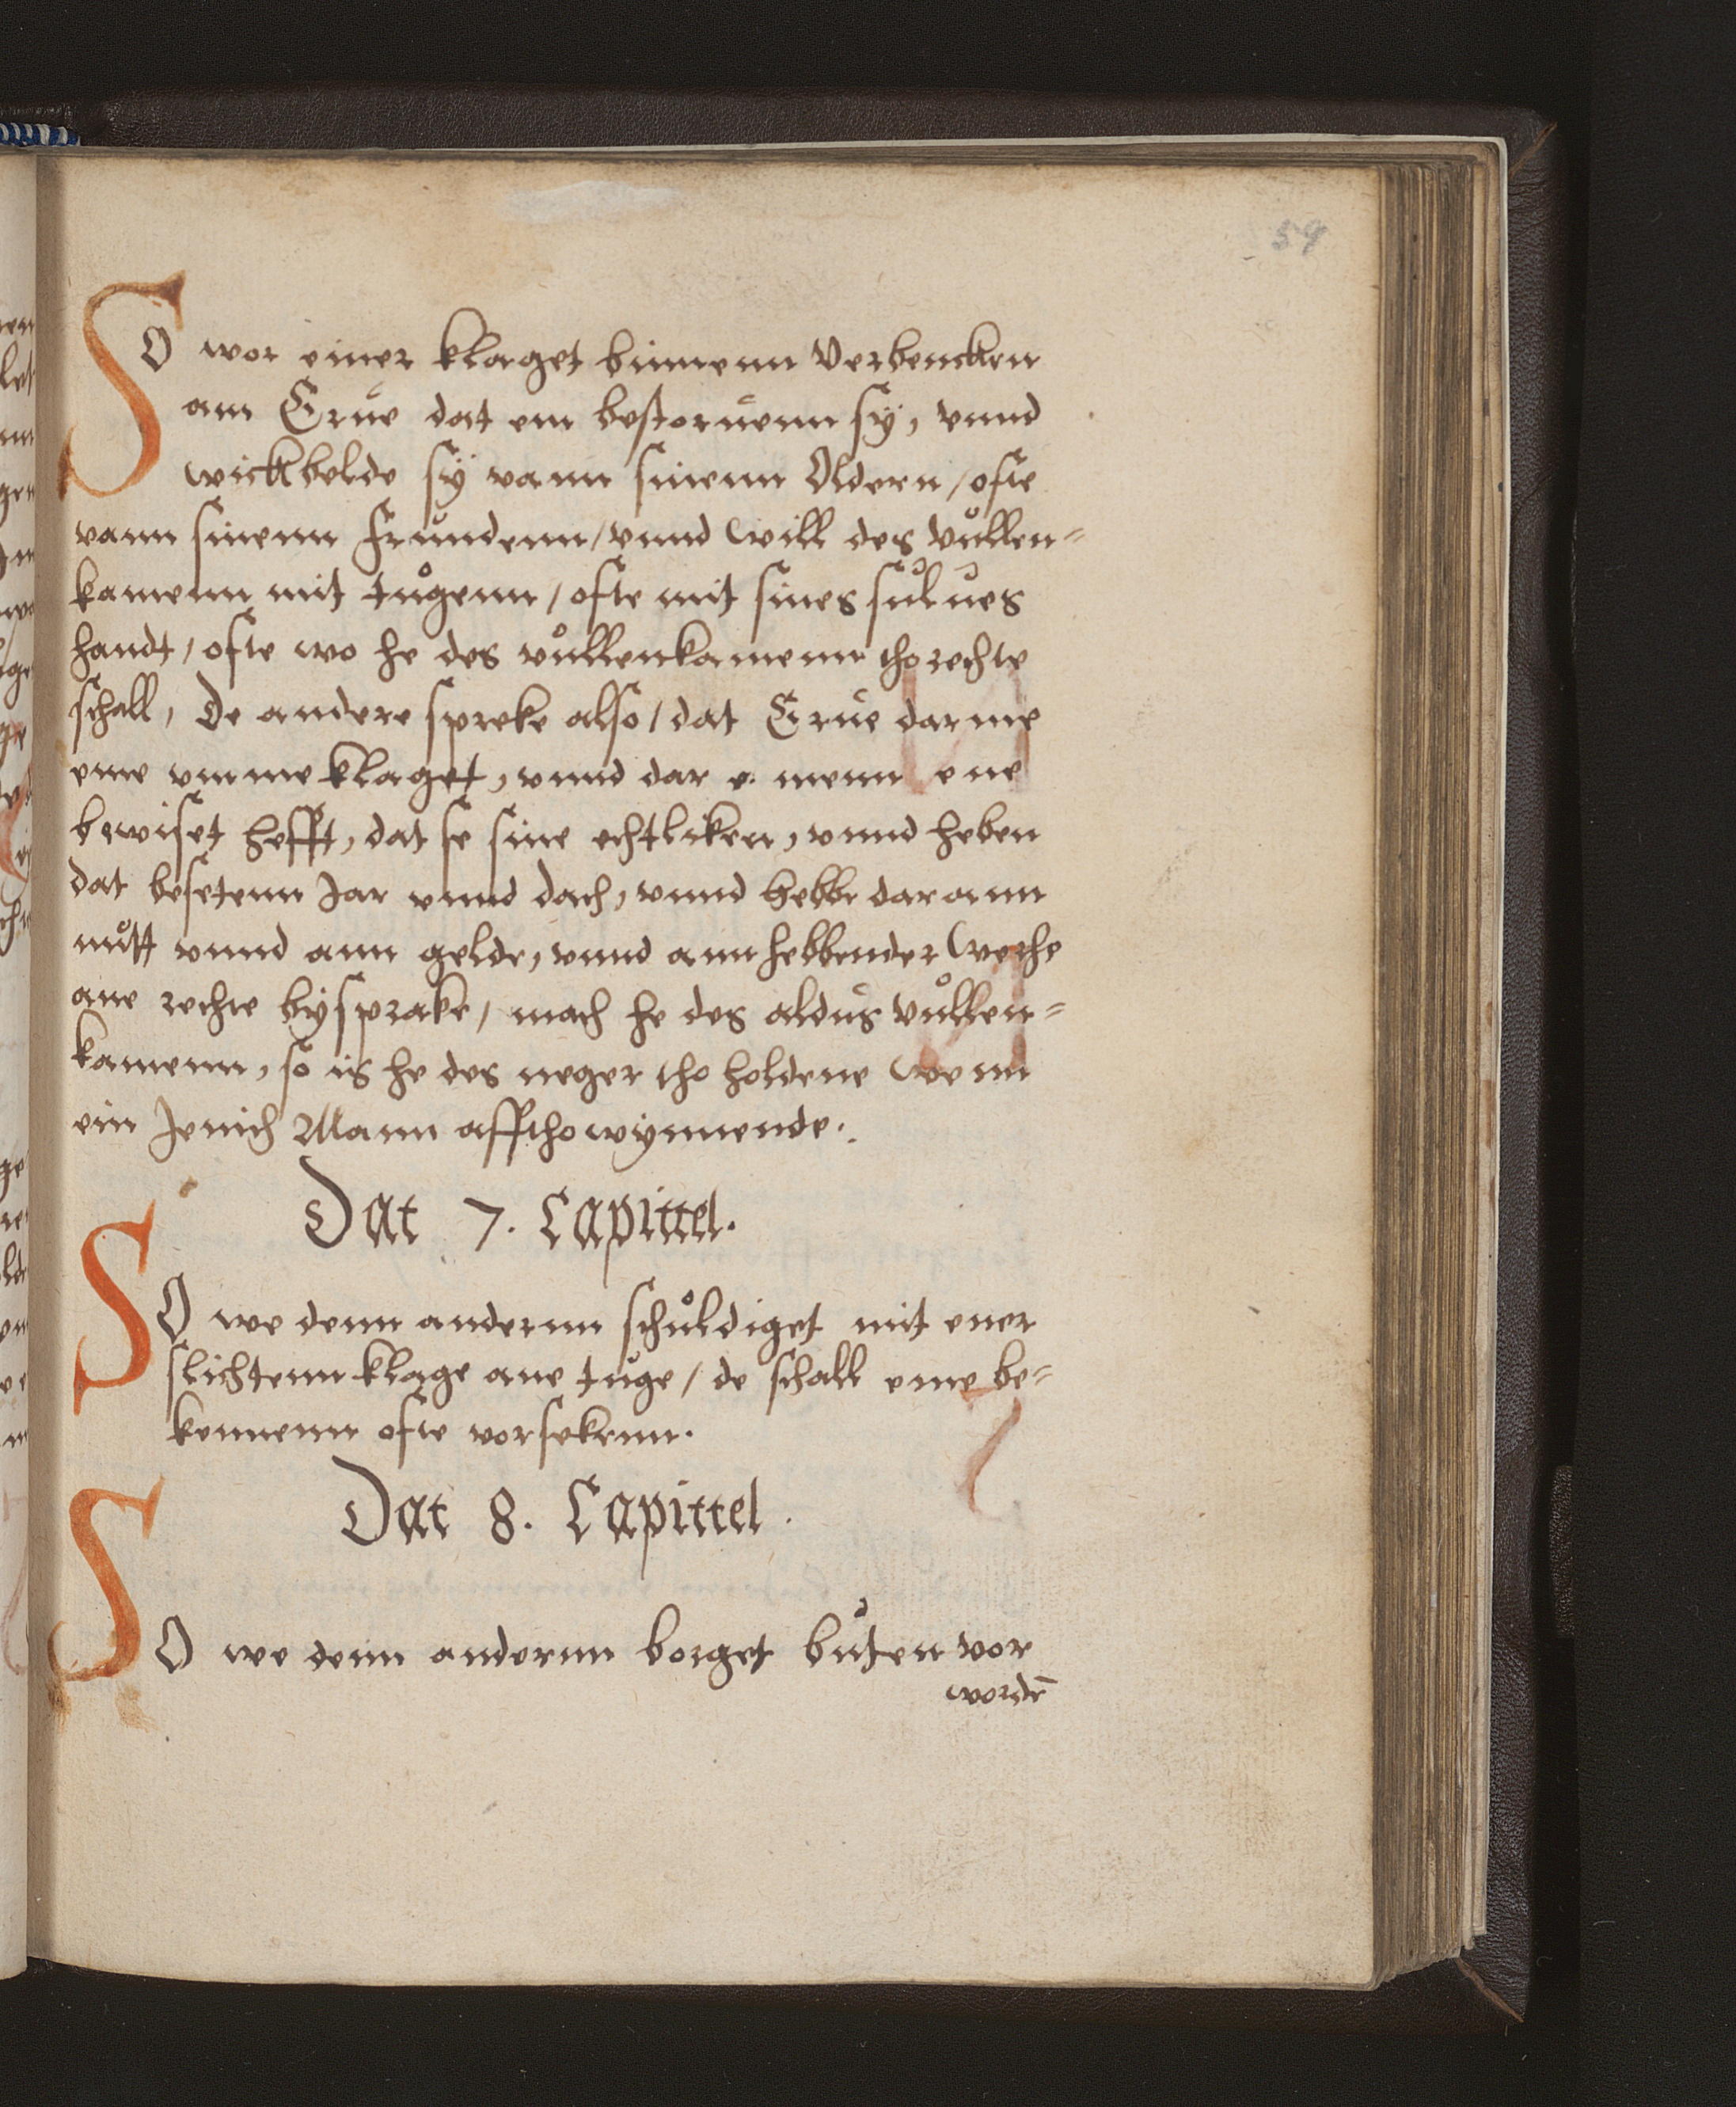 59
SO wor einer klaget binnenn Verbencken
am Erue dat em bestoruenn sÿ, vnnd
wickbelde sÿ vann sinenn Oldern / ofte
vann sinenn frůndenn / vnnd will des vůllen=
kamenn mit tůgenn / ofte mit sines sůlues
handt / ofte wo he des vůllenkamenn tho rechte
schall, De andere spreke also / dat Erue dar me
eme vmme klaget, vnnd dar e. menn ene
bewiset hefft, dat se sine echtliken, vnnd heben
dat besetenn Jar vnnd dach, vnnd hebbe dar ann
nůtt vnnd ann gelde, vnnd ann hebbender Wehe
ane rechte bÿsprake / mach he des aldus vůllen=
kamenn, so is he des neger tho holdene Wenn
ein Jenich Mann afftho wÿnnende.
Dat 7. Capittel.
SO we denn andernn schůldiget mit ener
slichtenn klage ane tůge / de schall eme be=
kennenn ofte vorsekenn.
Dat 8. Capittel.
SO we denn andernn borget bůten vor
wordē